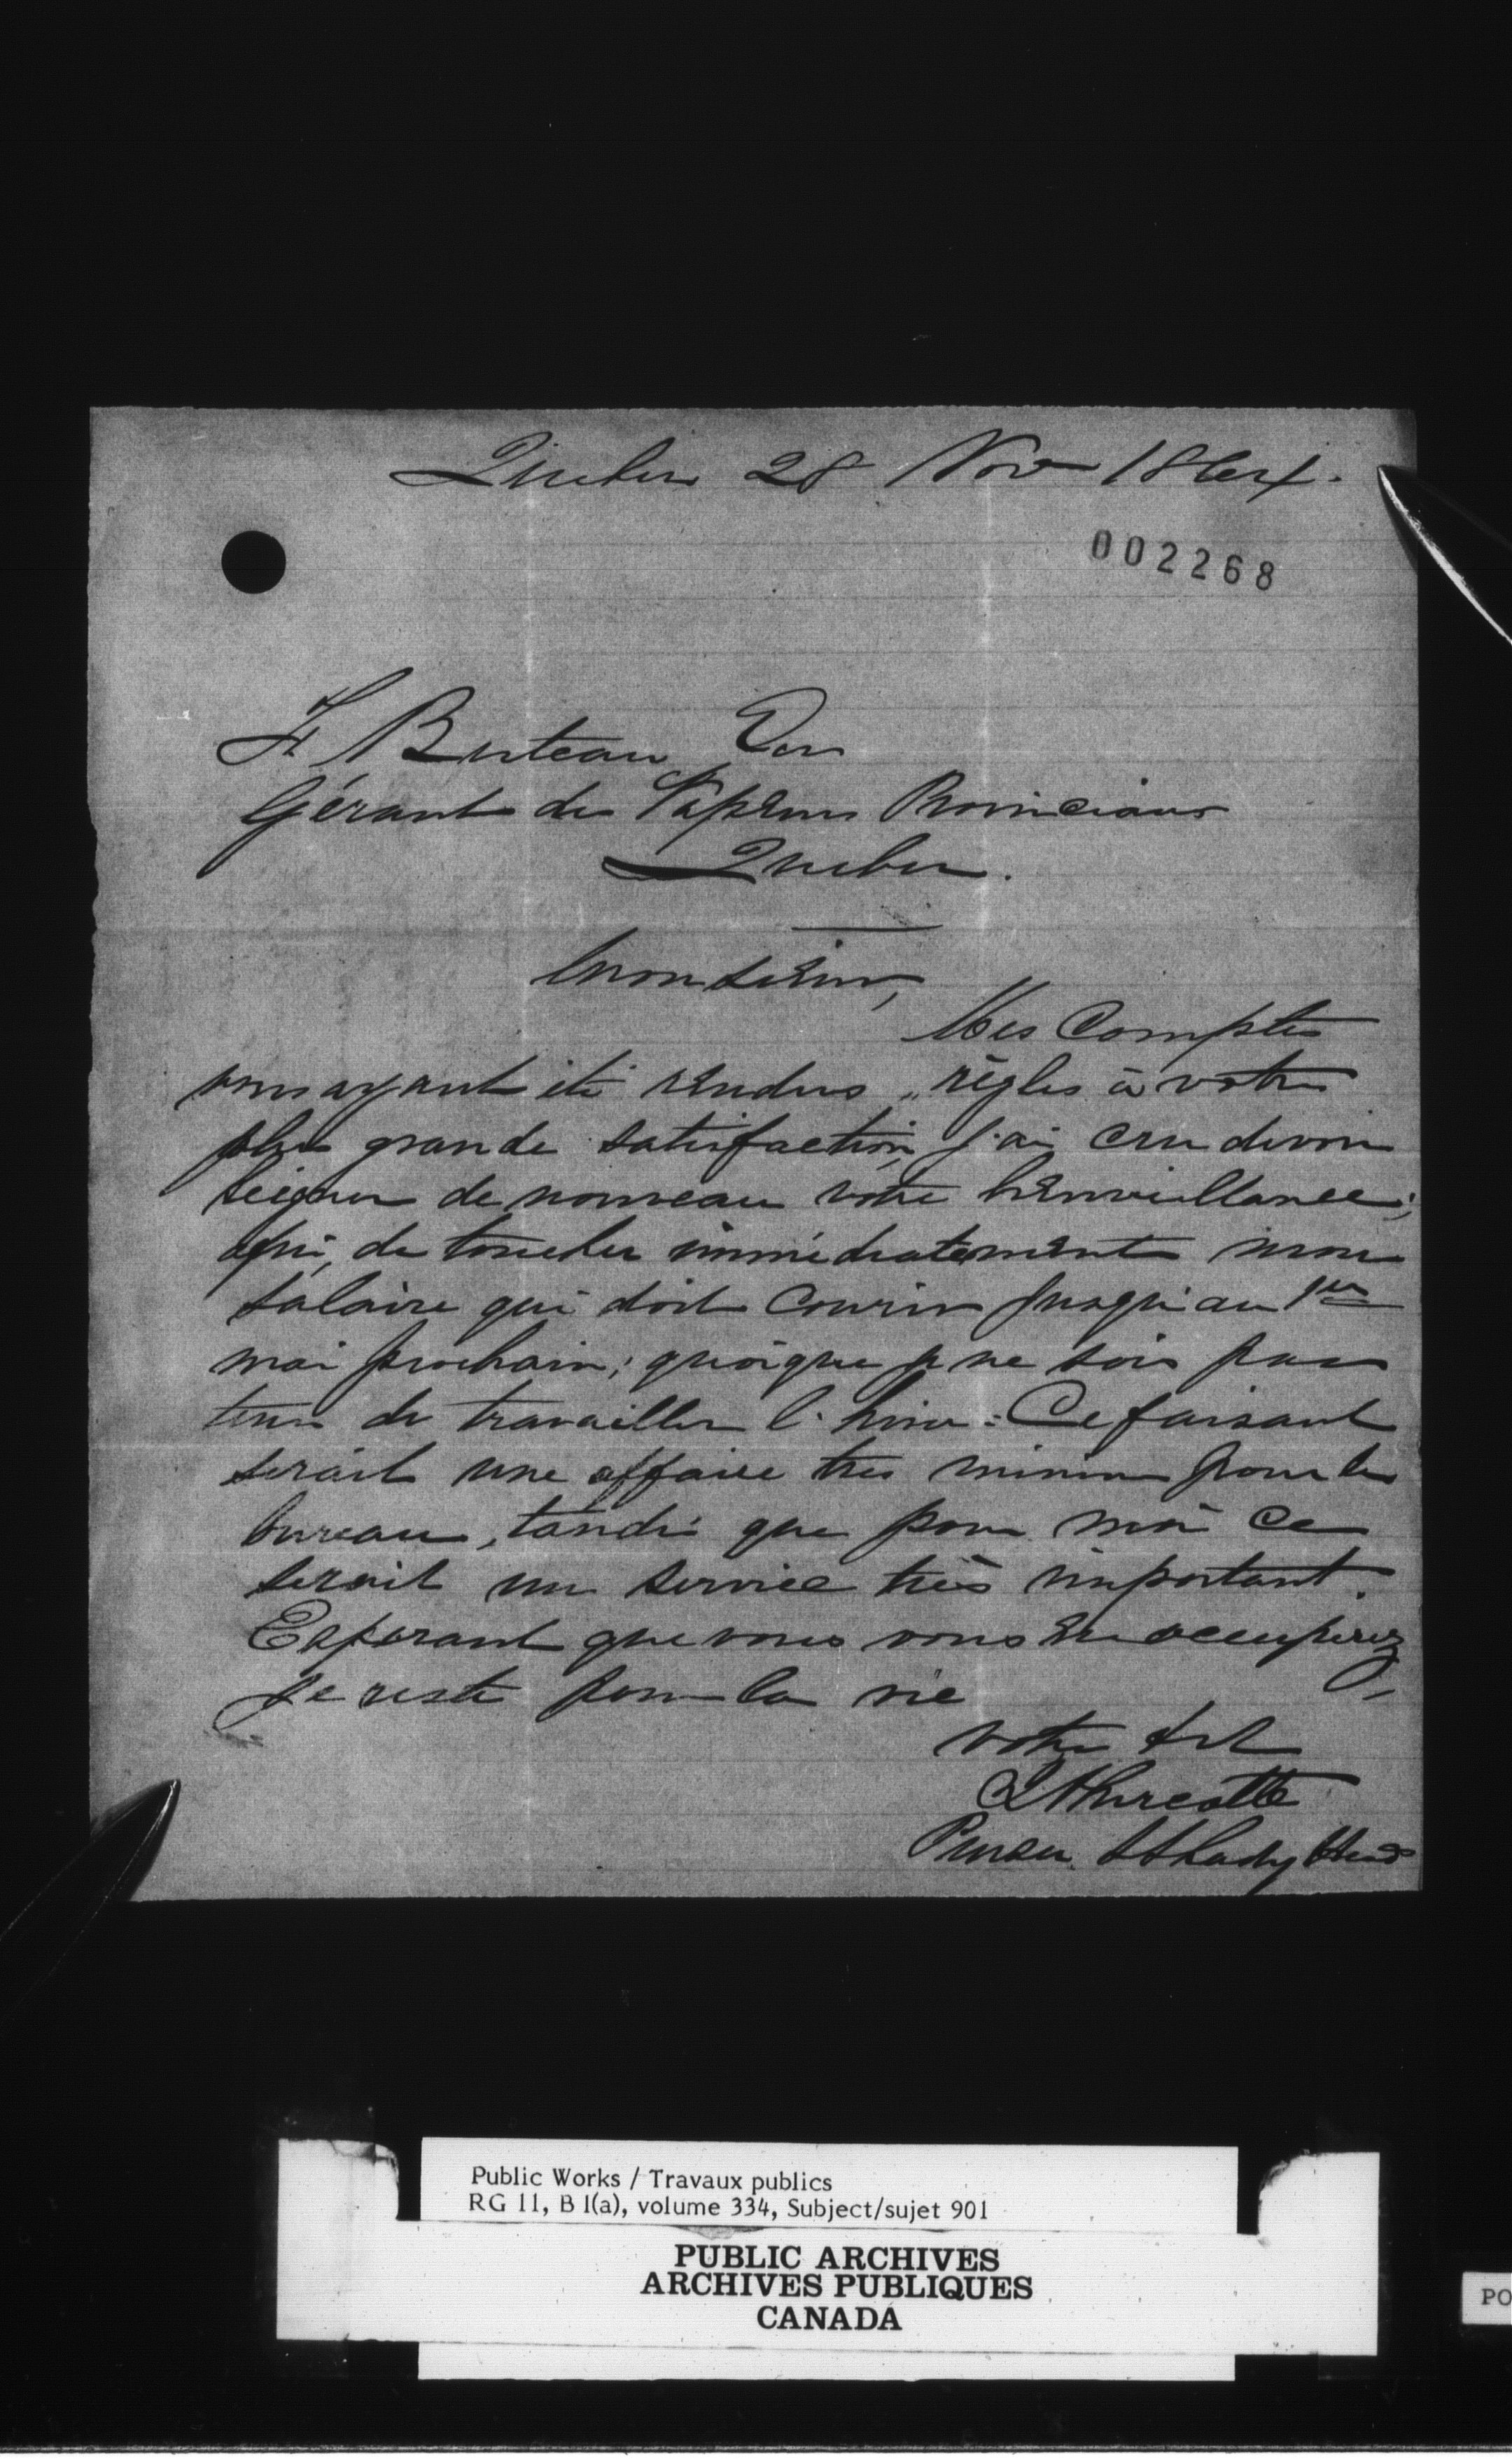 Quebec 28 Nov 1864.
002268
F. Buteau Ecr
Gérant des Vapeurs Provinciaux
Quebec.
Monsieur,
Mes Comptes
vous ayant été rendus, réglés à votre
plus grande satisfaction, j'ai cru devoir
de nouveau votre bienveillance;
afin, de toucher immédiatement mon
salaire qui doit courir jusqu'au 1er
mai prochain; quoique je ne sois pas
tenu de travailler l'hiver: Ce faisant
serait une affaire très minime pour le
bureau, tandis que pour moi ce
serait un service très important.
Esperant que vous vous en occuperez,
Je reste pour la vie
votre Svt
Turcotte
Purser SS Lady Head
Public Works / Travaux publics
RG 11, B 1(a), volume 334, Subject/sujet 901
PUBLIC ARCHIVES
ARCHIVES PUBLIQUES
CANADA
PO